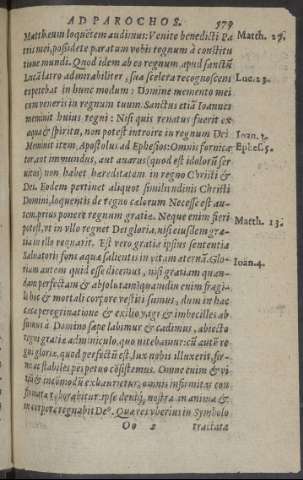 AD PAROCHOS. 579
Matthæum loquētem audimus: Venite benedicti Pa Matth. 25.
tris mei, possidete paratum vobis regnum à constitu
tione mundi. Quod idem ab eo regnum, apud sanctū
Lucā latro admirabiliter, sua scelera recognoscens Luc. 23.
expetebat in hunc modum: Domine memento mei
cùm veneris in regnum tuum. Sanctus etiā Ioannes
meminit huius regni: Nisi quis renatus fuerit ex
aqua & spiritu, non potest introire in regnum Dei Ioan. 3.
Meminit item Apostolus ad Ephesios: Omnis fornica Ephes. 5.
tor, aut immundus, aut auarus (quod est idolorū ser
uitus) non habet hæreditatem in regno Christi &
Dei. Eodem pertinet aliquot similitudines Christi
Domini, loquentis de regno cælorum Necesse est au-
tem, prius ponere regnum gratiæ. Neque enim fieri Matth. 13.
potest, vt in vllo regnet Dei gloria, nisi eiusdem gra-
tia in illo regnarit. Est vero gratia ipsius sententia
Saluatoris fons aquæ salientis in vitam æternā. Glo- Ioan. 4.
riam autem quid esse dicemus, nisi gratiam quan-
dam perfectam & absolutam? quamdiu enim fragi-
li hoc & mortali corpore vestiti sumus, dum in hac
cæca peregrinatione & exilio vagi & imbecilles ab
sumus à Domino sæpe labimur & cadimus, abiecto
regni gratiæ adminiculo, quo nitebamur: cū autē re
gni gloriæ, quod perfectū est, lux nobis illuxerit, fir-
mi ac stabiles perpetuo cōsistemus. Omne enim & vi
tiū & incōmodū exhaurietur, omnis infirmitas con
firmata roborabitur: ipse deniq; nostra in anima &
in corpore regnabit De9. Quæ res vberius in Symbolo
Oo 2 tractata